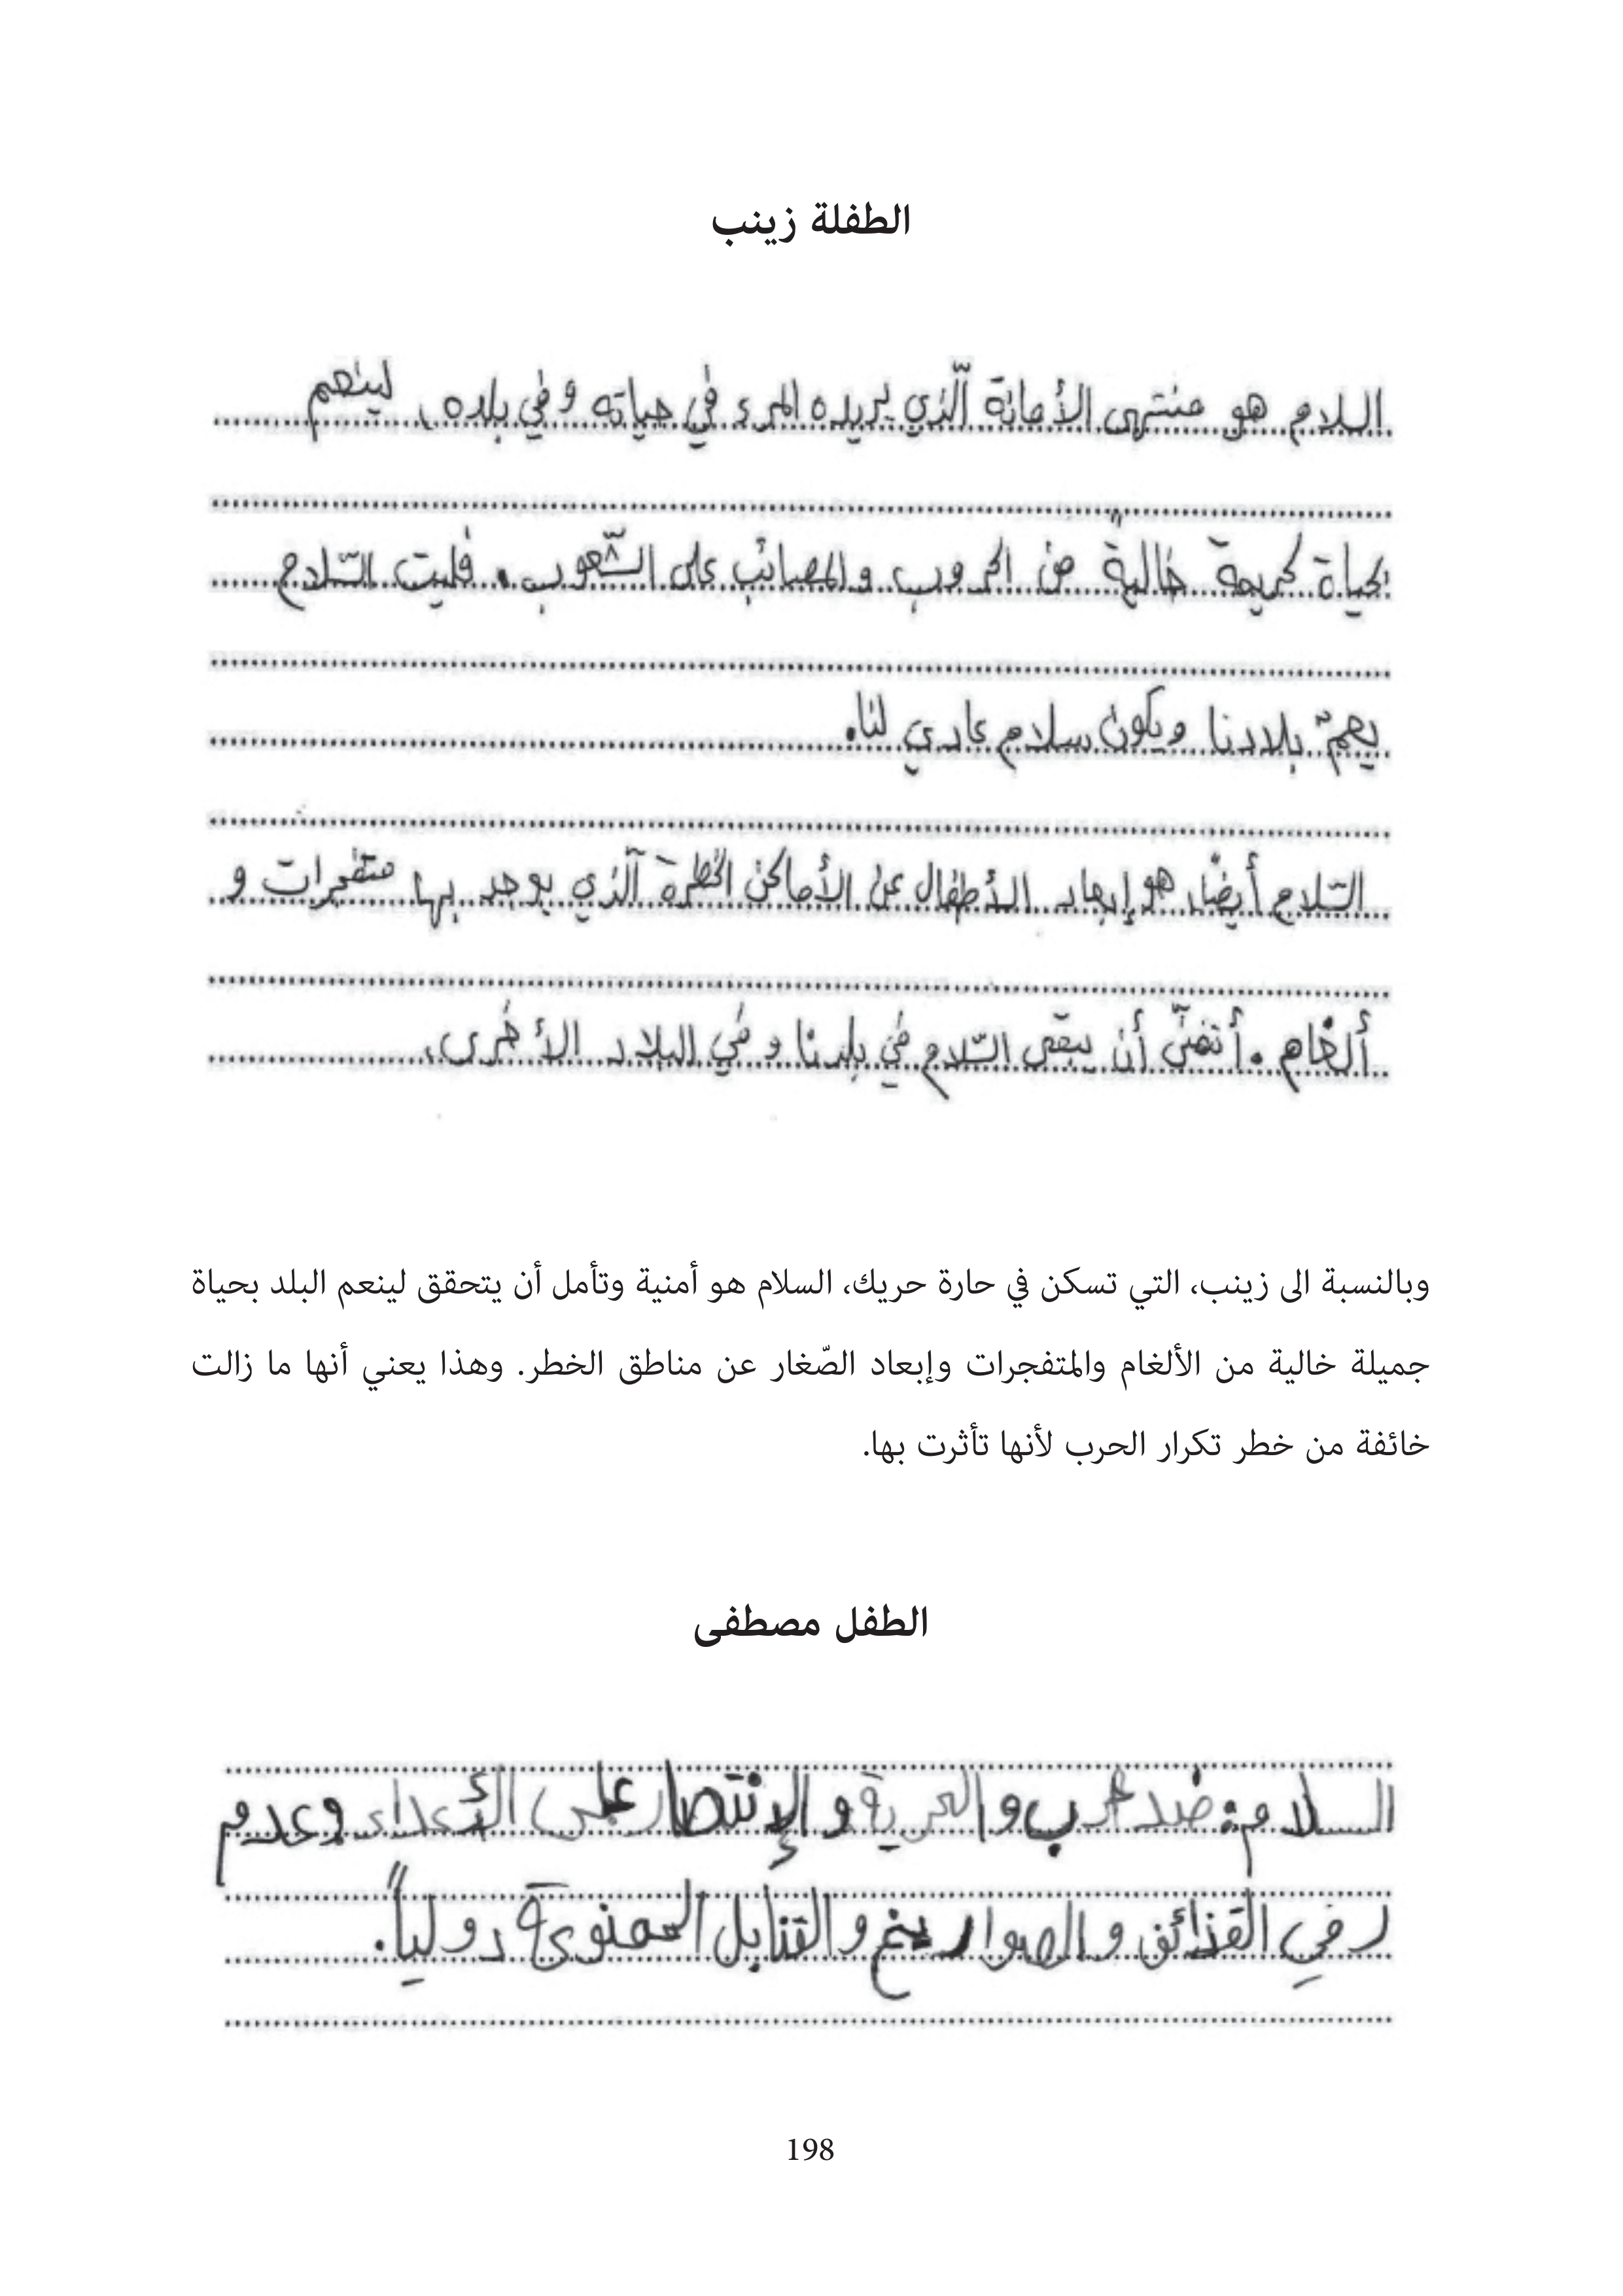 الطفلة زينب
السلام هو منتهى الأمانة الّذي يريده المرء في حياته وفي بلده، لينعم
بحياة كريمة خالية من الحروب والمصائب على الشّعوب. فليت السّلام
يعمّ بلادنا ويكون سلام عادي لنا.
السّلام أيضًا هو إبعاد الأطفال عن الأماكن الخطرة الّذي يوجد بها متفجرات و
ألغام. أتمنّى أن يبقى السّلام في بلدنا و في البلاد الأخرى.
وبالنسبة الى زينب، التي تسكن في حارة حريك، السلام هو أمنية وتأمل أن يتحقق لينعم البلد بحياة
جميلة خالية من الألغام والمتفجرات وإبعاد الصّغار عن مناطق الخطر. وهذا يعني أنها ما زالت
خائفة من خطر تكرار الحرب لأنها تأثرت بها.
الطفل مصطفى
السلام: ضد و الحرية و الإنتصار على الأعداء وعدم
رمي القذائف و الصواريخ و القنابل دولياً.
198